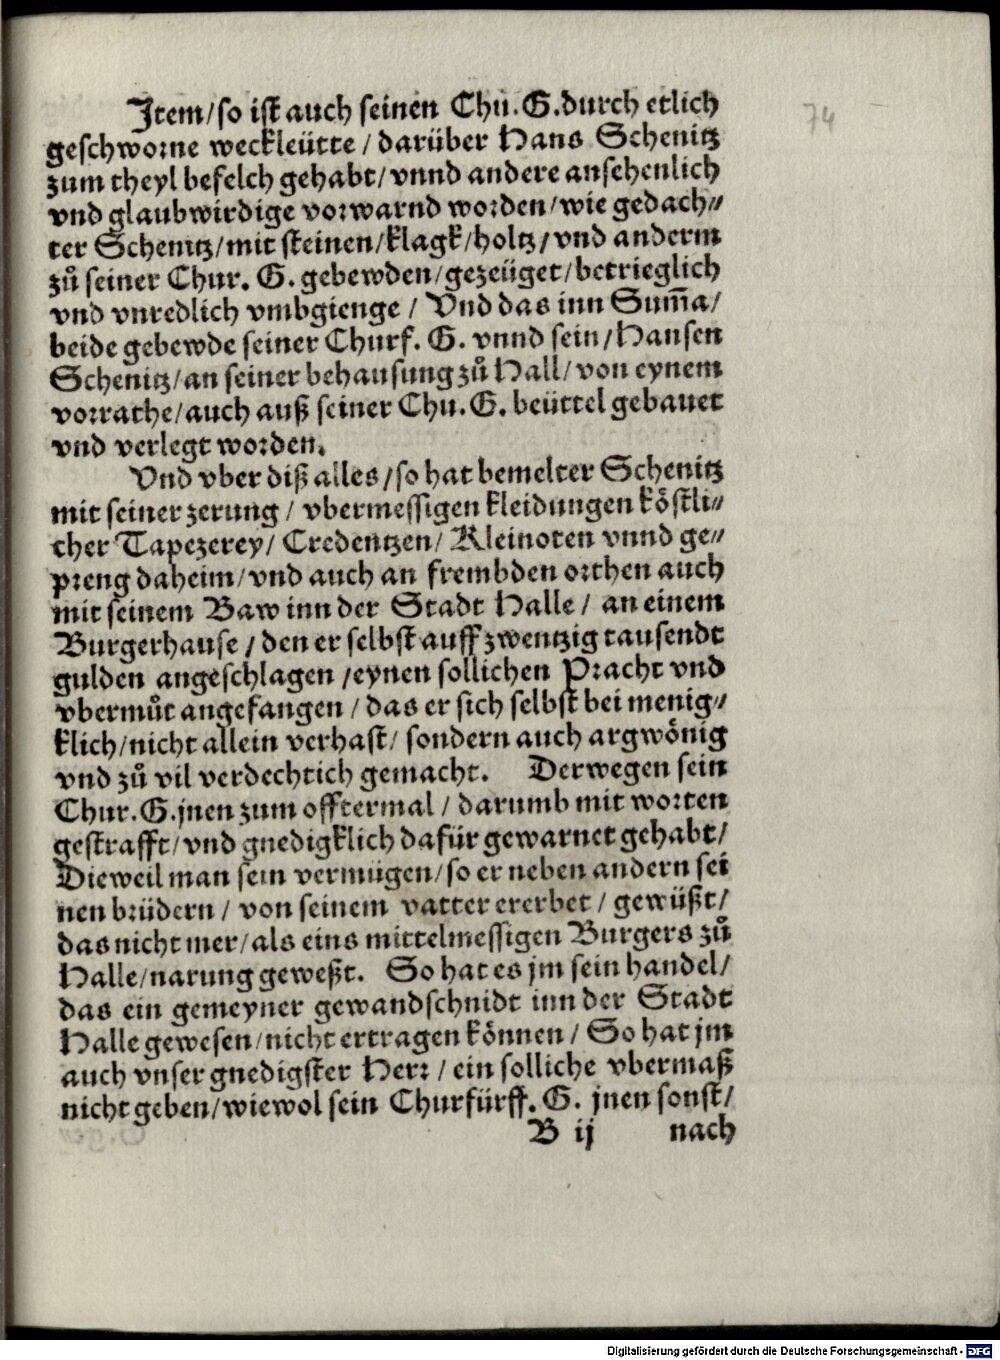 Item/so ist auch seinen Chu. G. durch etlich
74
geschworne weckleütte / darüber Hans Schenitz
zum theyl befelch gehabt/ vnnd andere ansehenlich
vnd glaubwirdige vorwarnd worden/wie gedach⸗
ter Schenitz/mit steinen/klagk/holtz/vnd anderm
zů seiner Chur. G. gebewden/gezeüget/betrieglich
vnd vnredlich vmbgienge / Vnd das inn Sum̄a/
beide gebewde seiner Churf. G. vnnd sein/Hansen
Schenitz/an seiner behausung zů Hall/von eynem
vorrathe/auch auß seiner Chu. G. beüttel gebauet
vnd verlegt worden.
Vnd vber diß alles /so hat bemelter Schenitz
mit seiner zerung / vbermessigen kleidungen köstli⸗
cher Tapezerey/ Credentzen/ Kleinoten vnnd ge⸗
preng daheim/vnd auch an frembden orthen auch
mit seinem Baw inn der Stadt Halle / an einem
Burgerhause / den er selbst auff zwentzig tausendt
gulden angeschlagen /eynen sollichen Pracht vnd
vbermůt angefangen / das er sich selbst bei menig⸗
klich/nicht allein verhast/ sondern auch argwönig
vnd zů vil verdechtich gemacht. Derwegen sein
Chur. G. jnen zum offtermal / darumb mit worten
gestrafft/vnd gnedigklich dafür gewarnet gehabt/
Dieweil man sein vermügen/so er neben andern sei
nen brüdern / von seinem vatter ererbet / gewüßt/
das nicht mer/als eins mittelmessigen Burgers zů
Halle/narung geweßt. So hat es jm sein handel/
das ein gemeyner gewandschnidt inn der Stadt
Halle gewesen/nicht ertragen können/ So hat jm
auch vnser gnedigster Herr / ein solliche vbermaß
nicht geben/wiewol sein Churfürff. G. jnen sonst/
B ij nach
Digitalisierung gefördert durch die Deutsche Forschungsgemeinschaft - DFG